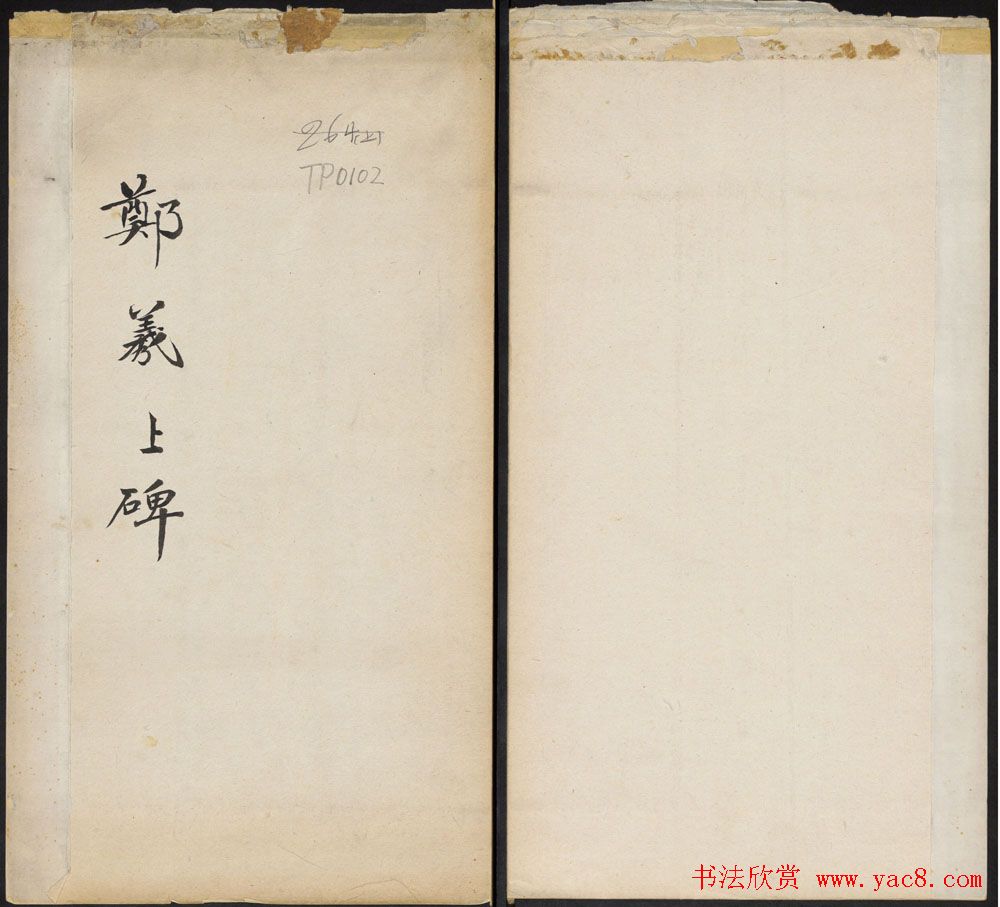 鄭羲上碑
TP0102
书法欣赏 www.yac8.com